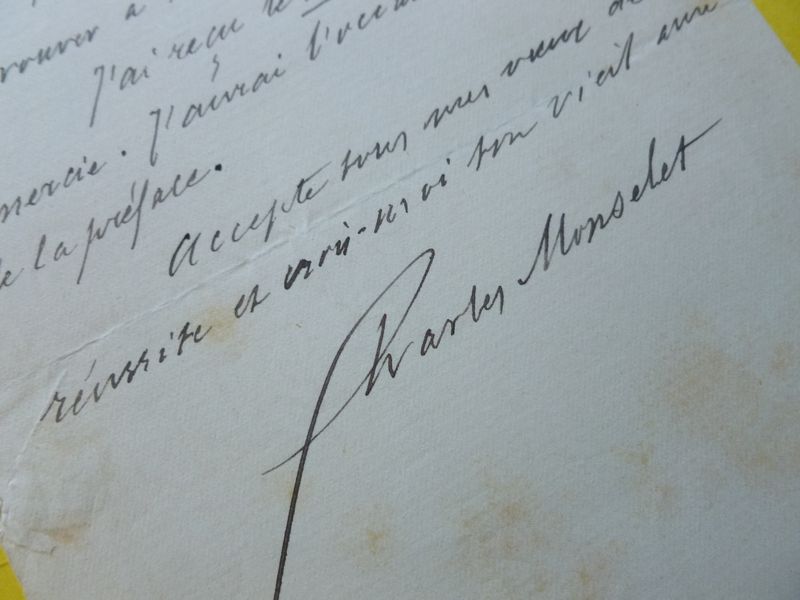 rouver à
J'ai reçu le
mercie. J'aurai l'occa
de la préface.
Accepte tous mes vœux de
réussite et crois-moi ton vieil ami
Charles Monselet